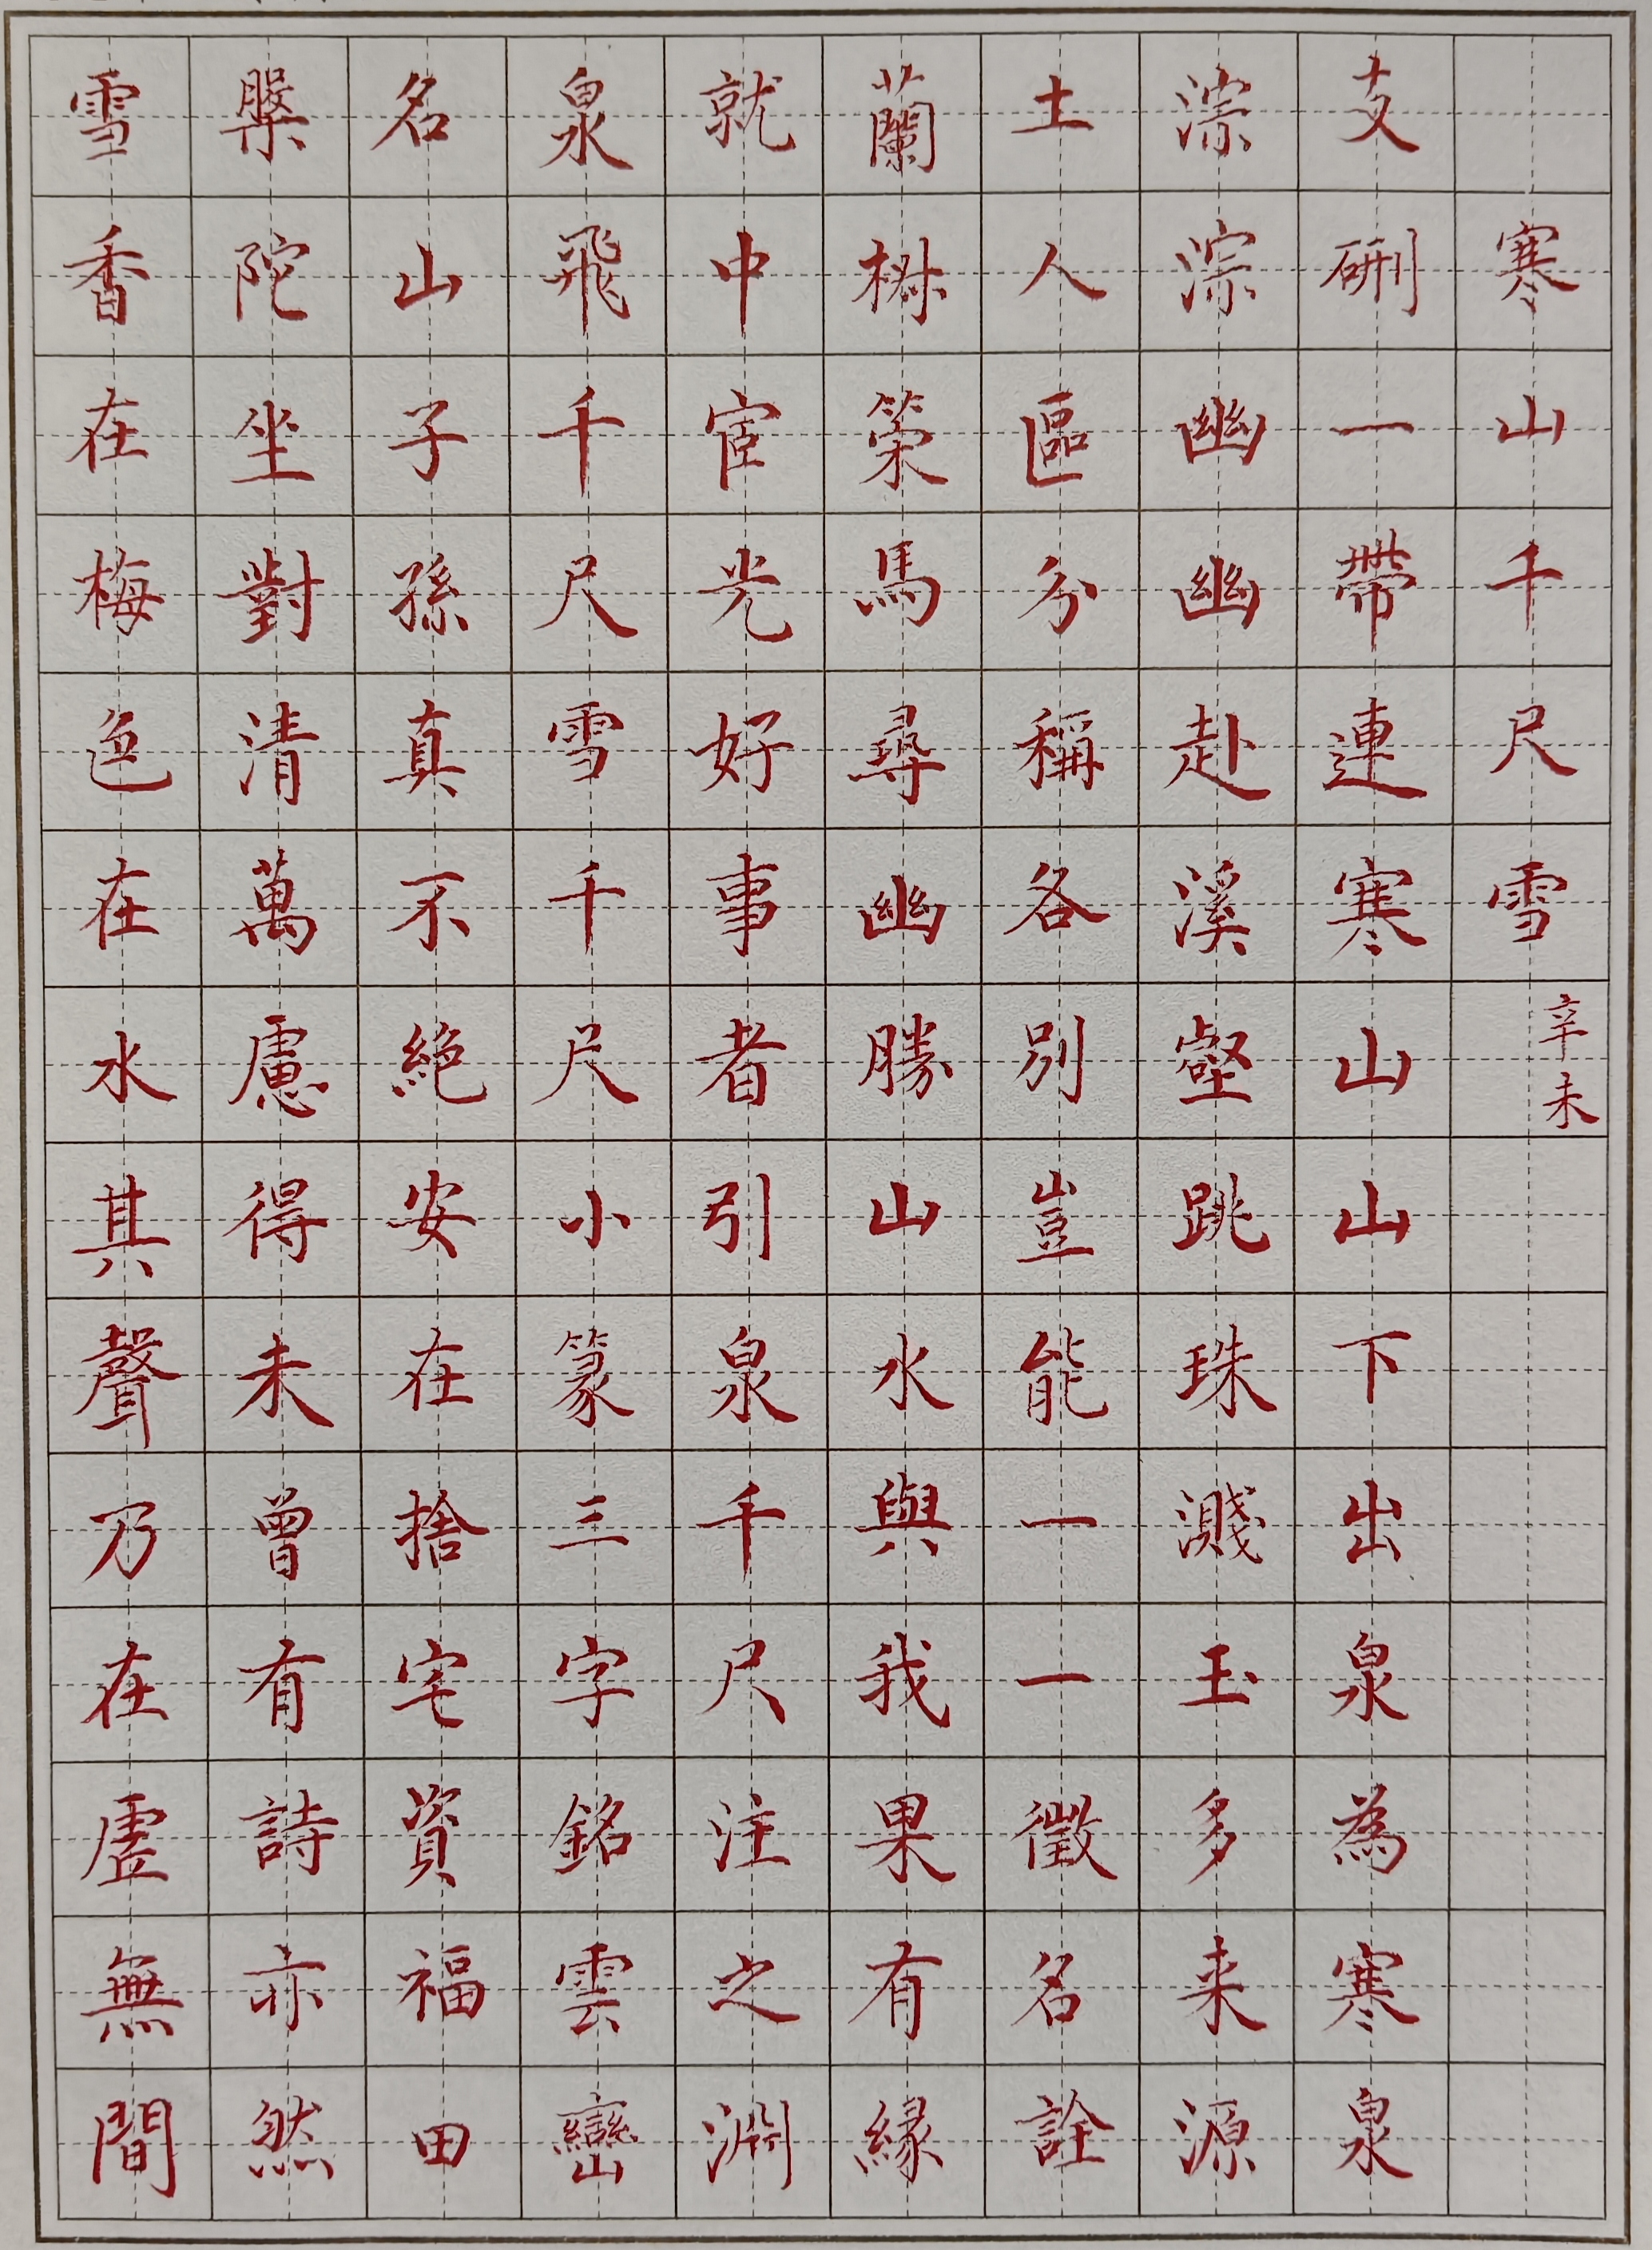 寒山千尺雪 辛未
支硎一帶連寒山山下出泉為寒泉
淙淙幽幽赴溪壑跳珠濺玉多来源
土人區分稱各別豈能一一徵名詮
蘭椒策馬尋幽勝山水與我果有緣
就中宦光好事者引泉千尺注之淵
泉飛千尺雪千尺小篆三字銘雲巒
名山子孫真不絕安在捨宅資福田
槃陀坐對清萬慮得未曾有詩亦然
雪香在梅色在水其聲乃在虛無間